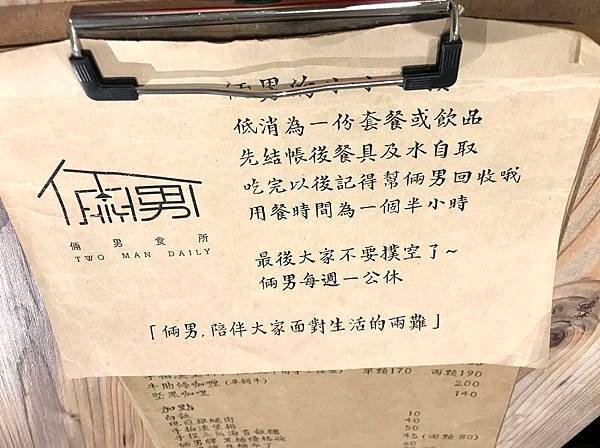 倆男的小小
低消為一份套餐或飲品
先結帳後餐具及水自取
吃完以後記得幫倆男回收哦
用餐時間為一個半小時
倆男
倆男食所
TWO MAN DAILY
最後大家不要撲空了~
倆男每週一公休
「倆男,陪伴大家面對生活的兩難」
單顆170 兩顆190
牛肋條咖哩 200
堅果咖哩 140
加點
白飯 10
40
50
45 (兩顆 80)
60